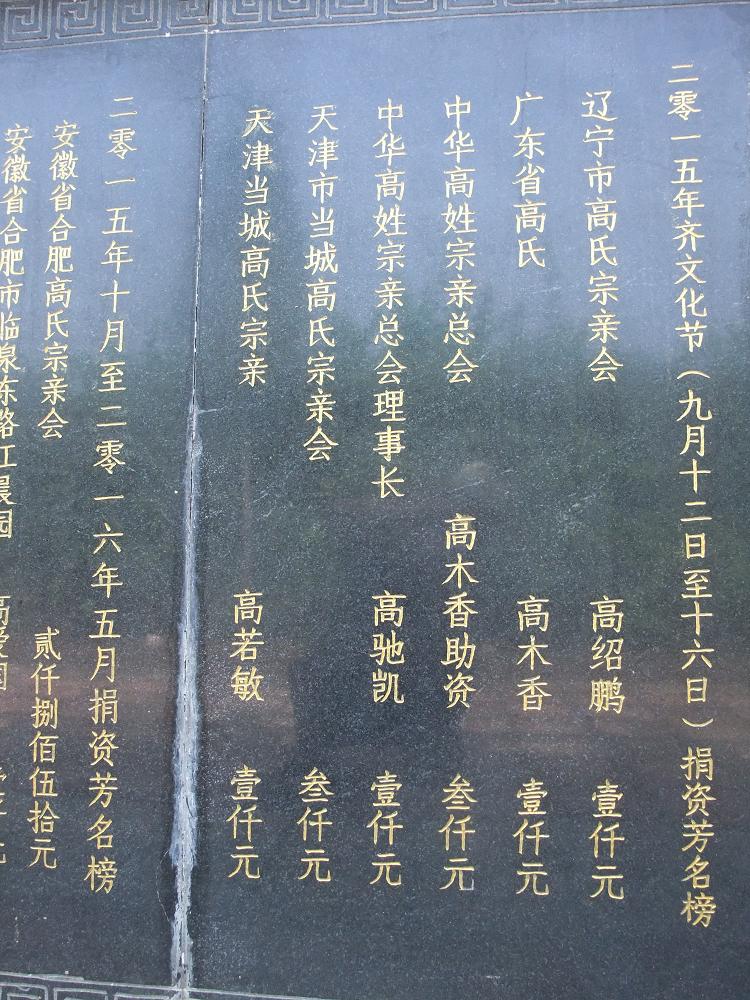 二零一五年齐文化节（九月十二日至十六日）捐资芳名榜
辽宁市高氏宗亲会 高绍鹏 壹仟元
广东省高氏 高木香 壹仟元
中华高姓宗亲总会 高木香助资 叁仟元
中华高姓宗亲总会理事长 高驰凯 壹仟元
天津市当城高氏宗亲会 叁仟元
天津当城高氏宗亲 高若敏 壹仟元
二零一五年十月至二零一六年五月捐资芳名榜
安徽省合肥高氏宗亲会 贰仟捌佰伍拾元
安徽省合肥市临泉东路江晨园